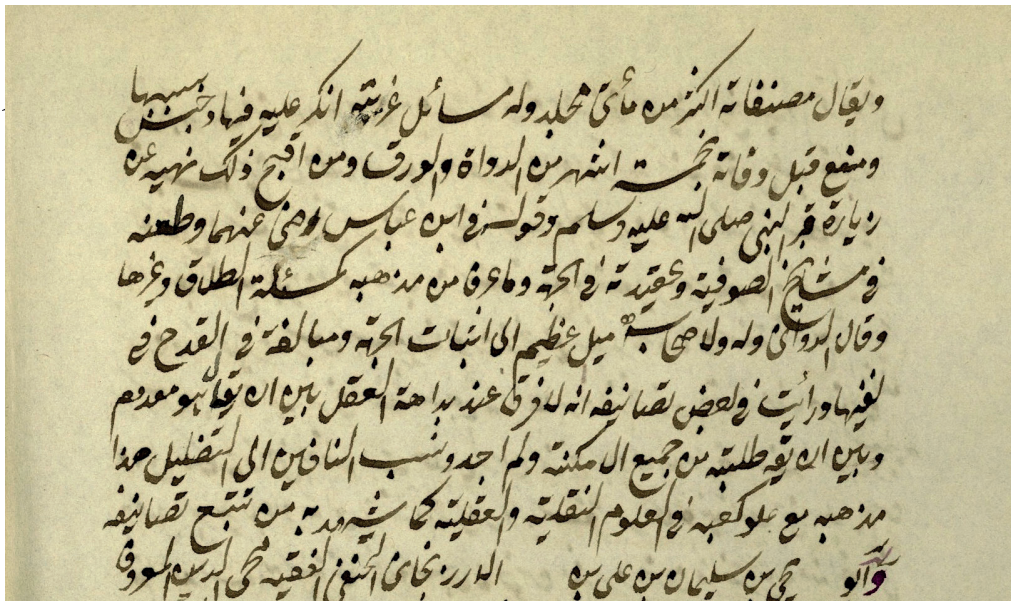 ويقال مصنفاته اكثر من مأتى مجلد وله مسائل غريبة انكر عليه فيها وحبس بسببها
ومنع قبل وفاته بخمسة اشهر من الدواة والورق ومن اقبح ذلك نهيه عن
زيارة قبر النبى صلى الله عليه وسلم وقوله فى ابن عباس رضى عنهما وطعنه
فى مشايخ الصوفية وعقيدته فى الجهة وما عرف من مذهبه كمسئلة الطلاق وغيرها
وقال الدوانى وله ولاصحابه ميل عظيم الى اثبات الجهة ومبالغة فى القدح فى
نفيها ورأيت فى بعض تصانيفه انه لا فرق عند بداهة العقل بين ان يقا هو معدوم
وبين ان يقه طلبته من جميع الامكنة ولم اجد ونسب النافين الى التضليل هذا
مذهبه مع علو كعبه فى العلوم النقلية والعقلية كما شهد به من تتبع تصانيفه
يحيى بن سليمان بن على بن الحنفى الفقيه محى الدين المعروف